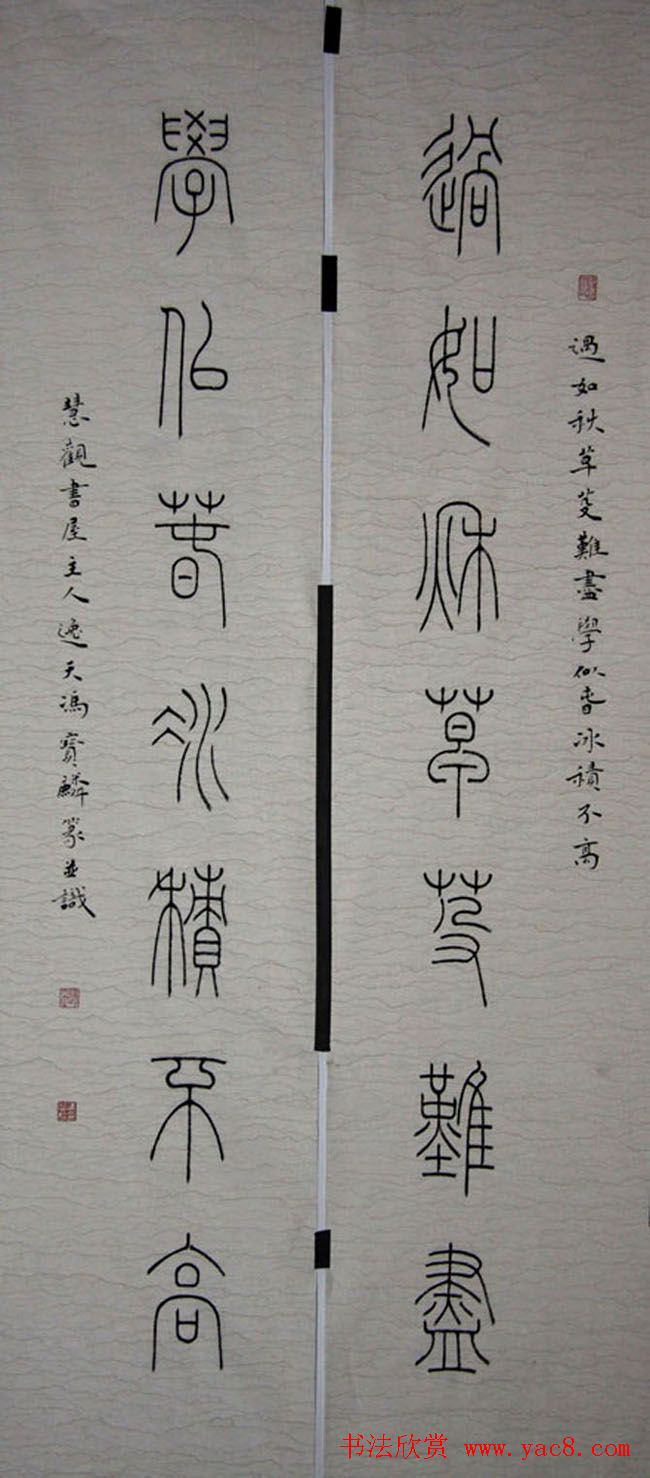 過如秋草芟難盡學似春冰積不高
過如秋草芟難盡
學似春冰積不高
慧觀書屋主人逸天馮寶麟篆並識
书法欣赏 www.yac8.com